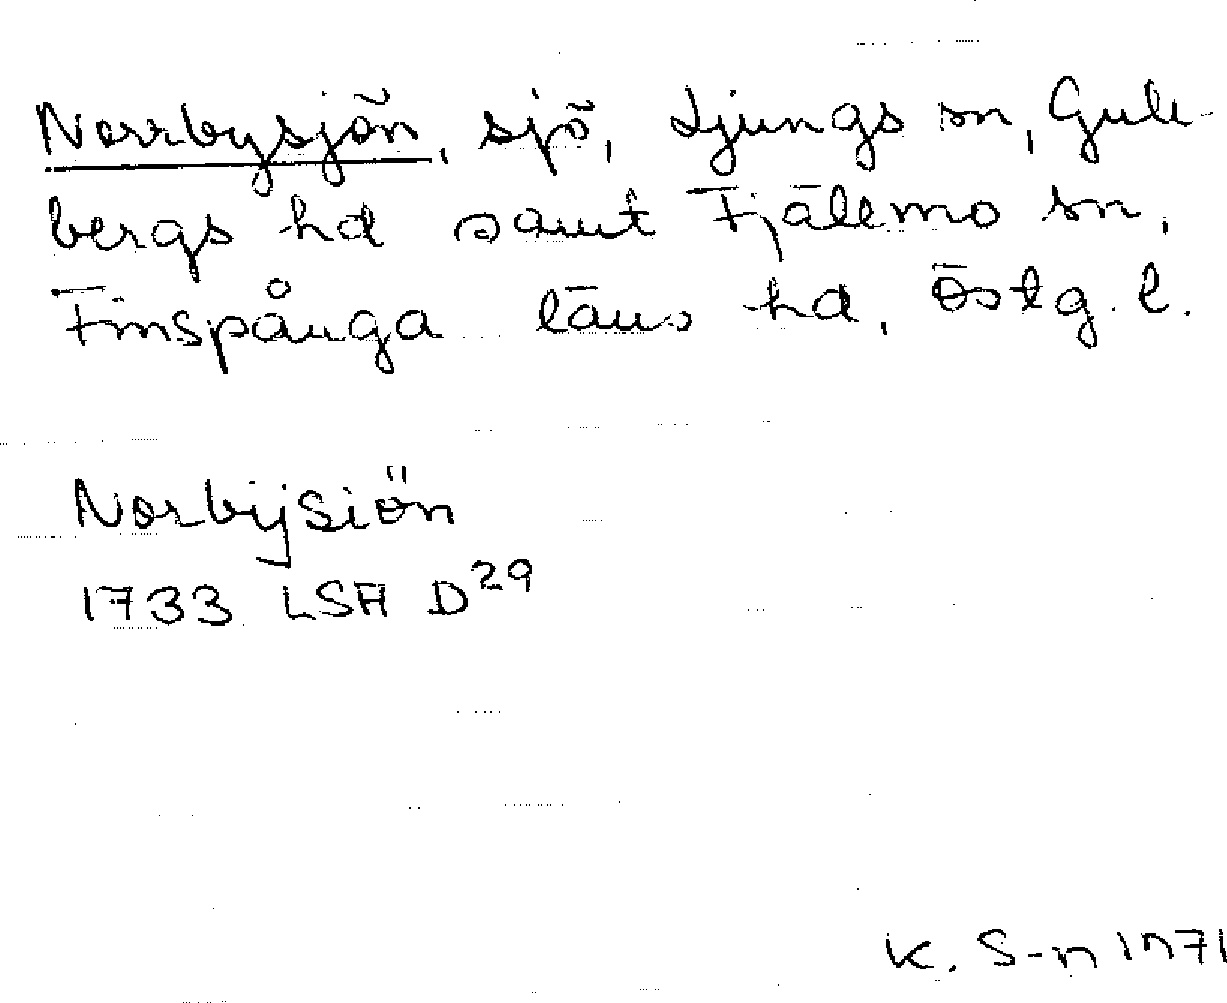 Norrbysjön, sjö, Ljungs sn, Gull-
bergs hd samt Tjällmo sn,
Finspånga läns hd, Östg. l.
Norbijsiön
1733 LSA D29
K. S-n 1971